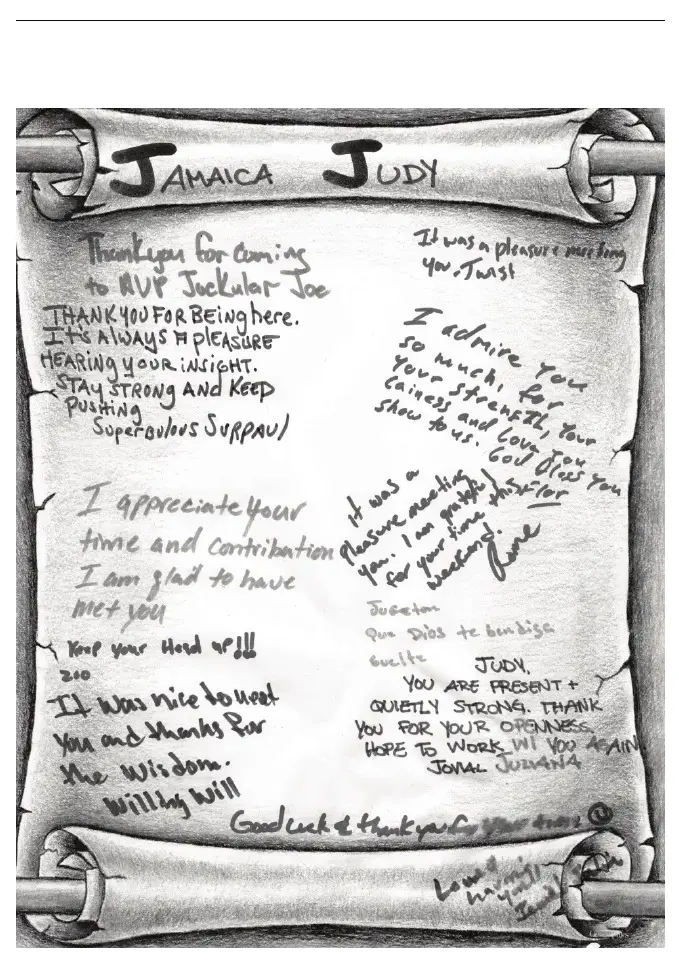 JAMAICA JUDY
Thankyou for coming
to AVP Jockular Joe
It was a pleasure meeting
you, Twist
THANK YOU FOR BEing here.
It's ALWAYS A plEASURE
HEARiNG YOUR iNSIGHT.
STAY STRONG AND KEEP
PUSHING
SuperbulouS SURPAUl
I admire you
so much, for
your strength, your
and love you
show to us. God bless you
Flor
I appreciate your
time and contribution
I am glad to have
met you
It was a
pleasure meeting
you. I am grateful
for your time this
weekend.
Keep your Head up!!!
Que Dios te bendiga
suelte
It was nice to meet
you and thanks for
the wisdom.
Willing Will
JUDY,
YOU ARE PRESENT +
QUIETLY STRONG. THANK
YOU FOR YOUR OPENNESS
HOPE TO WORK W/ YOU AGAIN
JOVIAL JULIANA
Good luck & thank you for your time
Love
having
you!!